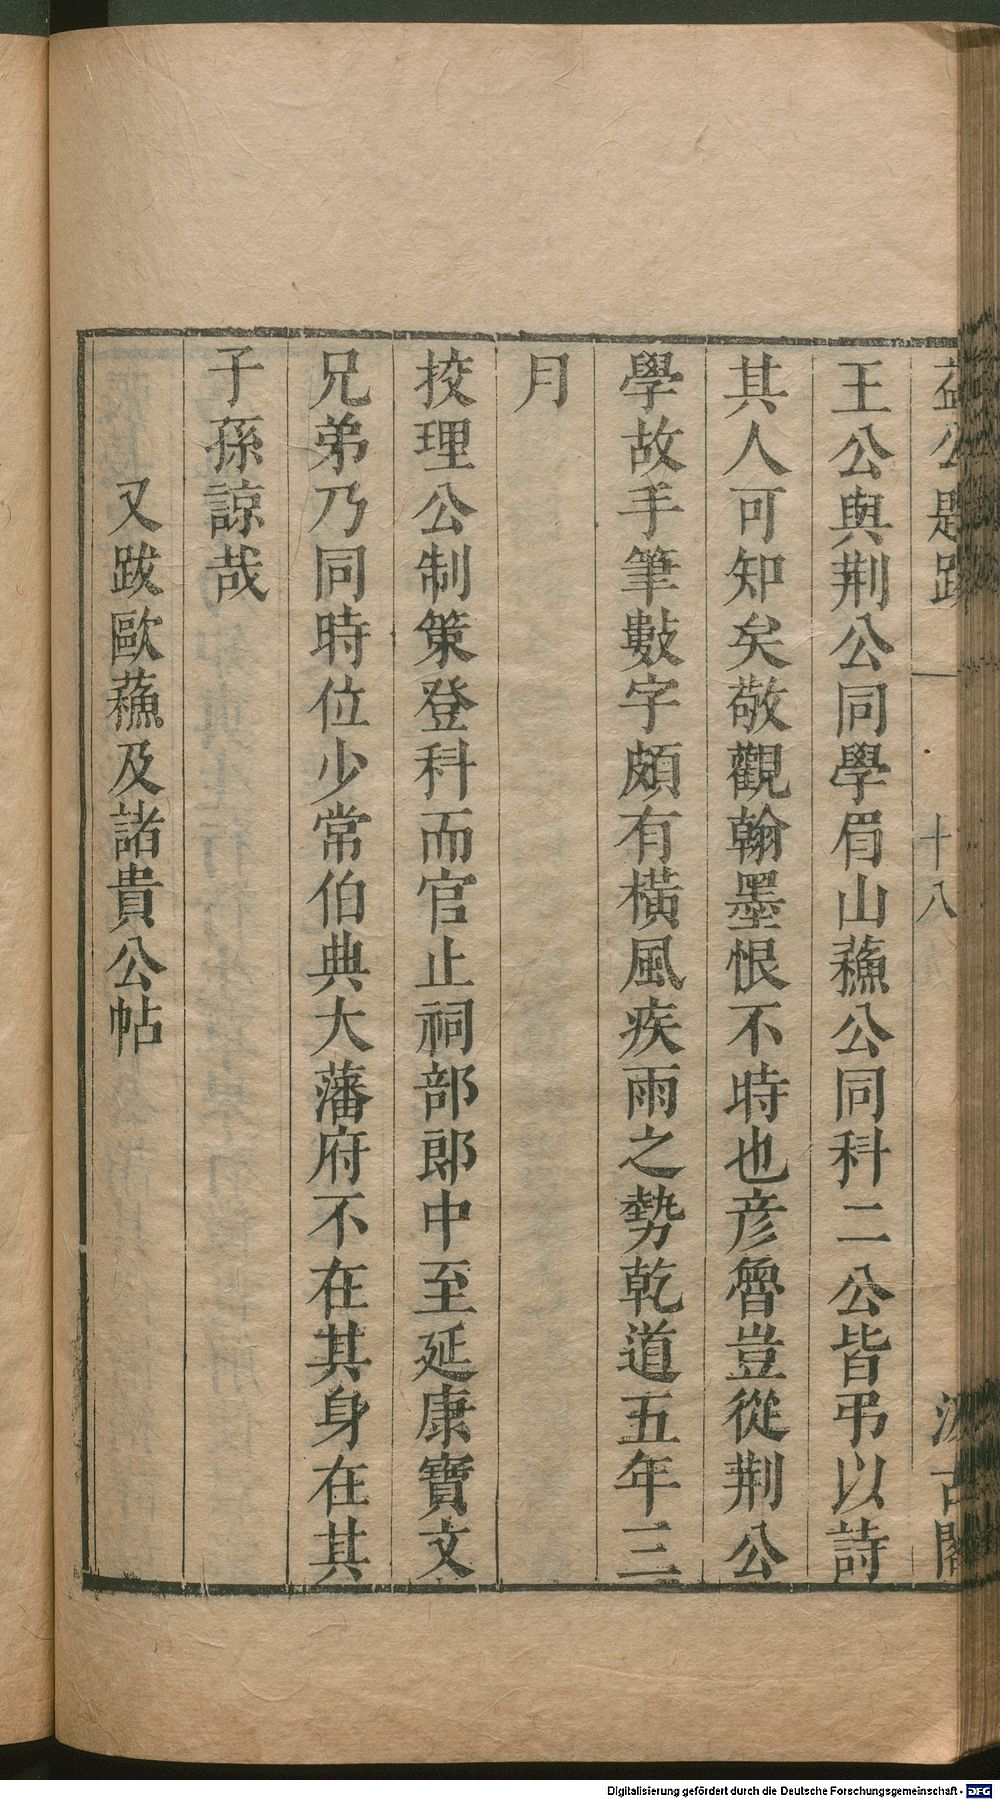 益公題跋 十八 汲古閣
王公與荆公同學眉山蘓公同科二公皆弔以詩
其人可知矣敬觀翰墨恨不時也彦魯豈從荆公
學故手筆數字頗有橫風疾雨之勢乾道五年三
月
挍理公制策登科而官止祠部郎中至延康寶文
兄弟乃同時位少常伯典大藩府不在其身在其
子孫諒哉
又跋歐蘓及諸貴公帖
Digitalisierung gefördert durch die Deutsche Forschungsgemeinschaft - DFG